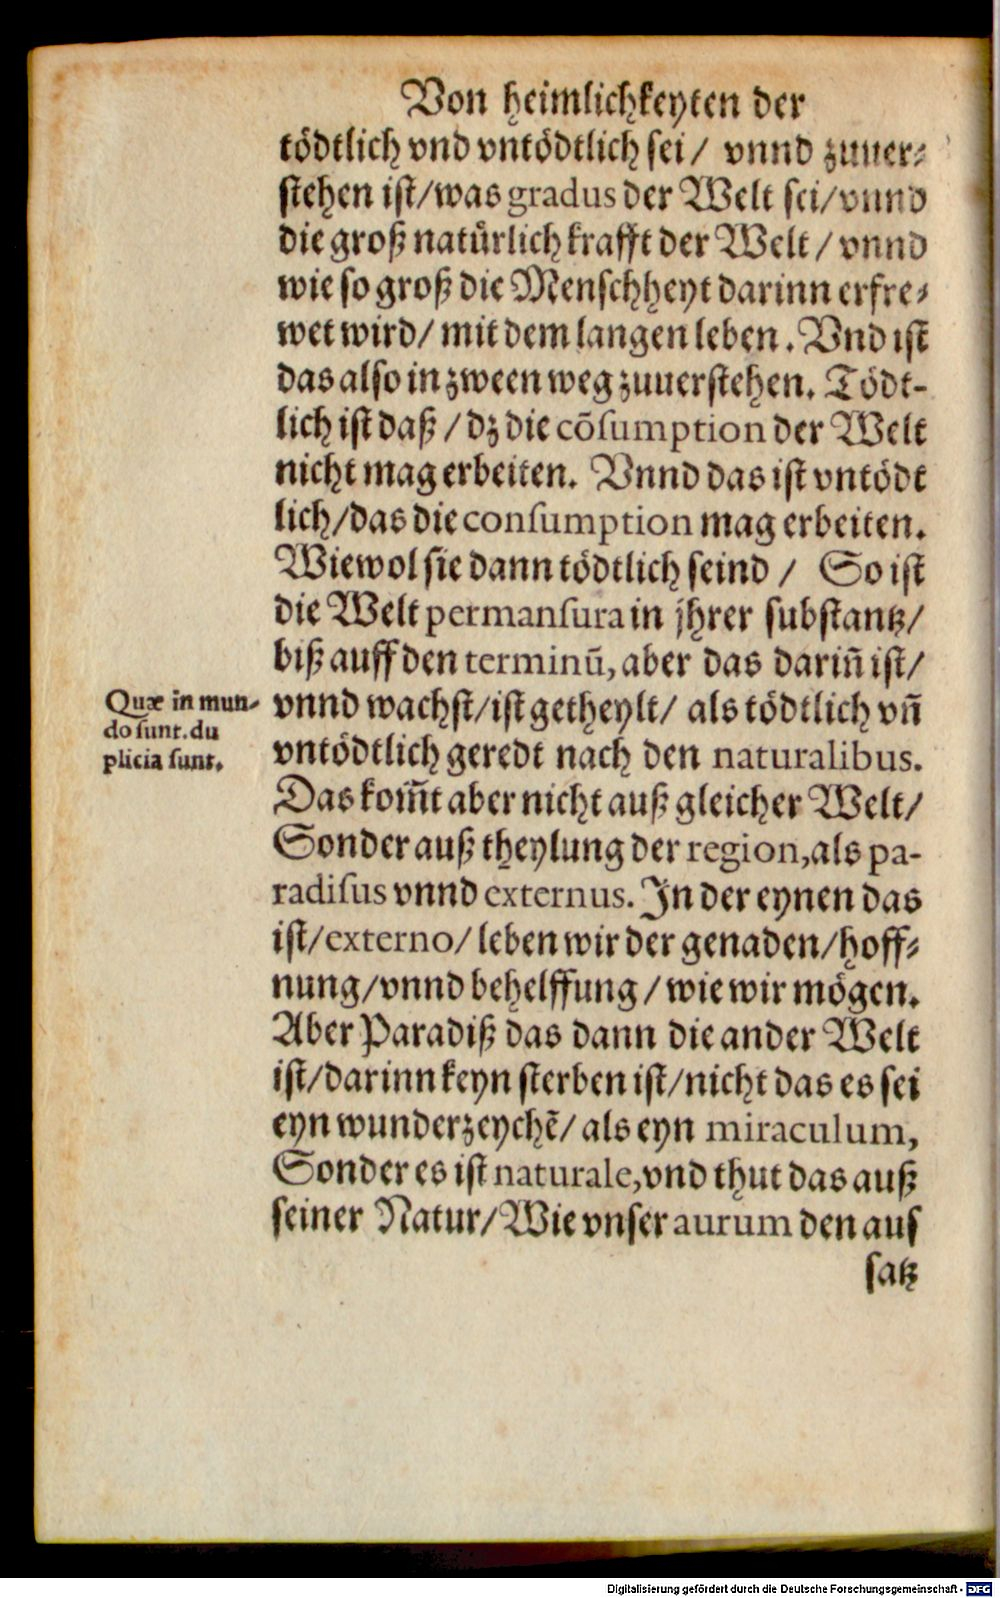 Von heimlichkeyten der
tödtlich vnd vntödtlich sei/ vnnd zuuer⸗
stehen ist/was gradus der Welt sei/vnnd
die groß natürlich krafft der Welt/vnnd
wie so groß die Menschheyt darinn erfre⸗
wet wird/ mit dem langen leben. Vnd ist
das also in zween weg zuuerstehen. Tödt-
lich ist daß/dz die cõsumption der Welt
nicht mag erbeiten. Vnnd das ist vntödt
lich/das die consumption mag erbeiten.
Wiewol sie dann tödtlich seind/ So ist
die Welt permansura in jhrer substantz/
biß auff den terminũ, aber das dariñ ist/
Quæ in mun-
do sunt. du
plicia sunt.
vnnd wachst/ist getheylt/ als tödtlich vñ
vntödtlich geredt nach den naturalibus.
Das kom̃t aber nicht auß gleicher Welt/
Sonder auß theylung der region, als pa-
radisus vnnd externus. In der eynen das
ist/externo/ leben wir der genaden/hoff⸗
nung/vnnd behelffung/wie wir mögen.
Aber Paradiß das dann die ander Welt
ist/darinn keyn sterben ist/nicht das es sei
eyn wunderzeychẽ/ als eyn miraculum,
Sonder es ist naturale, vnd thut das auß
seiner Natur/Wie vnser aurum den aus
satz
Digitalisierung gefördert durch die Deutsche Forschungsgemeinschaft - DFG